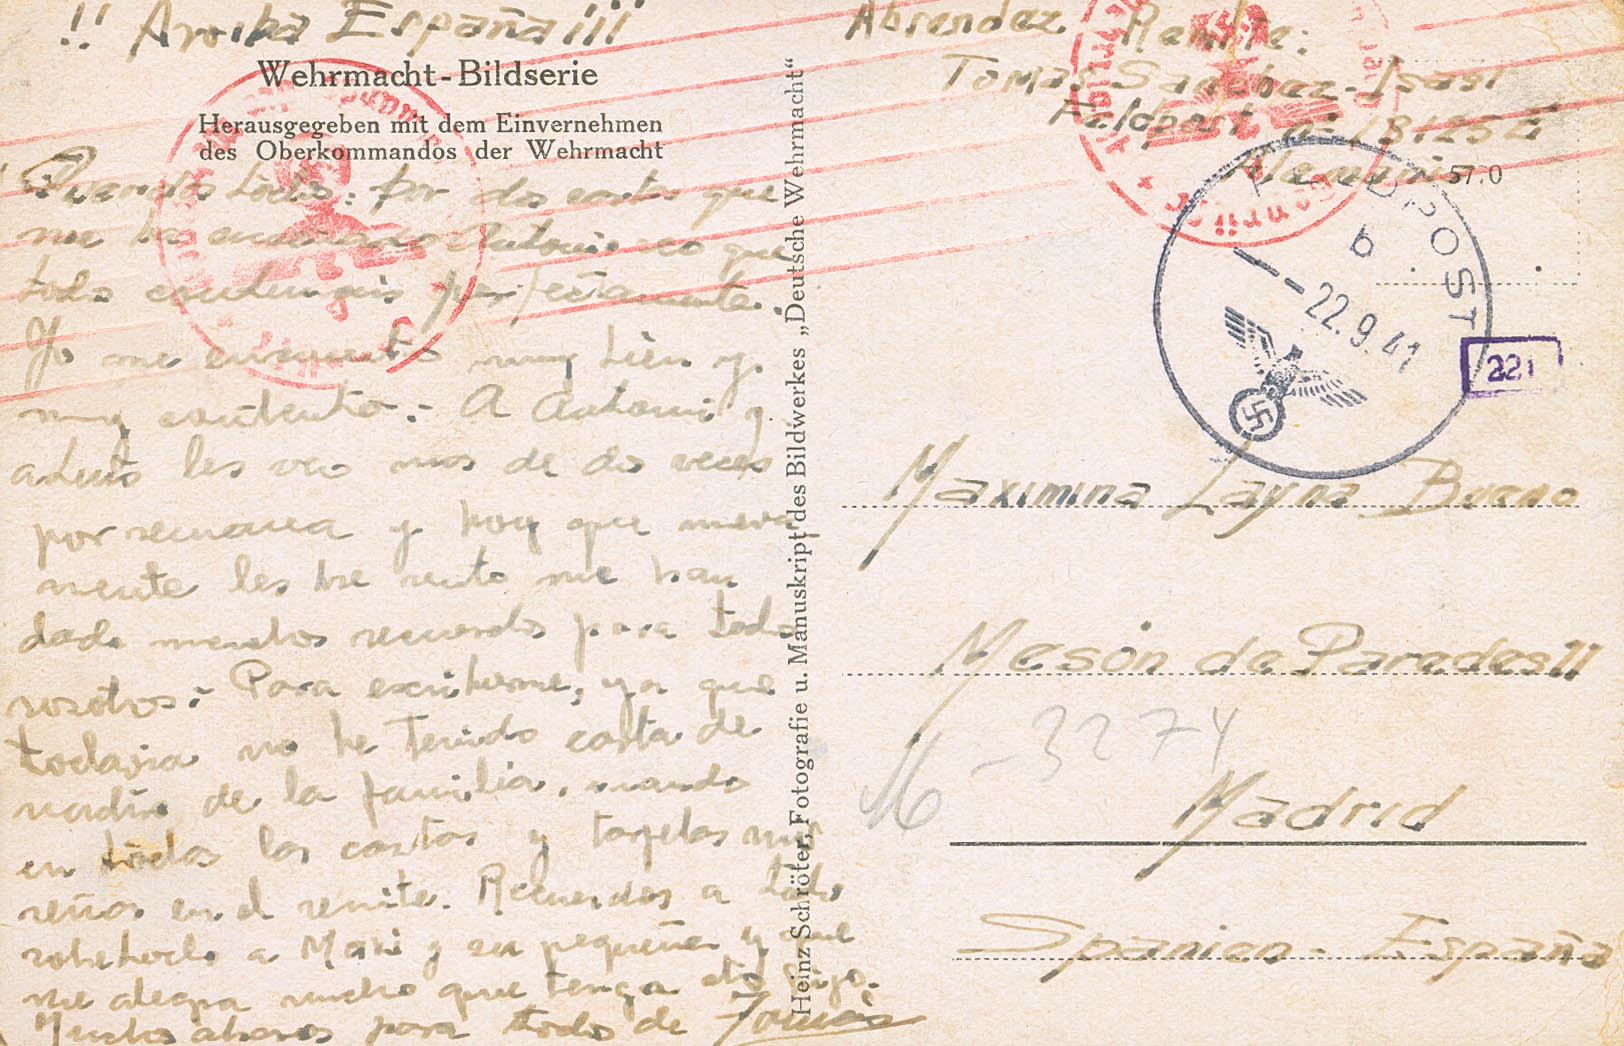 !! Arriba España!!!
Wehrmacht-Bildserie
Herausgegeben mit dem Einvernehmen
des Oberkommandos der Wehrmacht
Queridos todos: por dos cartas que
me ha enviado Antonio veo que
todos continuais perfectamente.
Yo me encuentro muy bien y
muy contento.- A Antonio y
a Luis les veo mas de dos veces
por semana y hoy que nueva
mente les he visto me han
dado muchos recuerdos para todos
vosotros.- Para escribirme, ya que
todavia no he tenido carta de
nadie de la familia, mando
en todas las cartas y tarjetas mis
señas en el remite. Recuerdos a todos
sobretodo a Mari y su pequeña y que
me alegra mucho que tenga otro hijo.
Muchos abrazos para todos de Tomás
Heinz Schröter, Fotografie u. Manuskript des Bildwerkes „Deutsche Wehrmacht“
Absender Remite:
Tomas Sanchez-Isasi
Feldpost nº 18125 E
Alemania
57.0
FELDPOST
b
22.9.41
221
Maximina Layna Bueno
Mesón de Paredes 11
16-3274
Madrid
Spanien - España